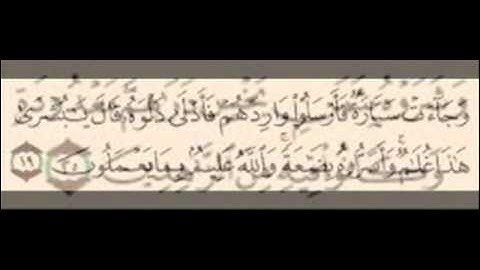 وَجَآءَتْ سَيَّارَةٌ فَأَرْسَلُوا۟ وَارِدَهُمْ فَأَدْلَىٰ دَلْوَهُۥ ۖ قَالَ يَـٰبُشْرَىٰ
هَـٰذَا غُلَـٰمٌ ۚ وَأَسَرُّوهُ بِضَـٰعَةً ۚ وَٱللَّهُ عَلِيمٌۢ بِمَا يَعْمَلُونَ ١٩